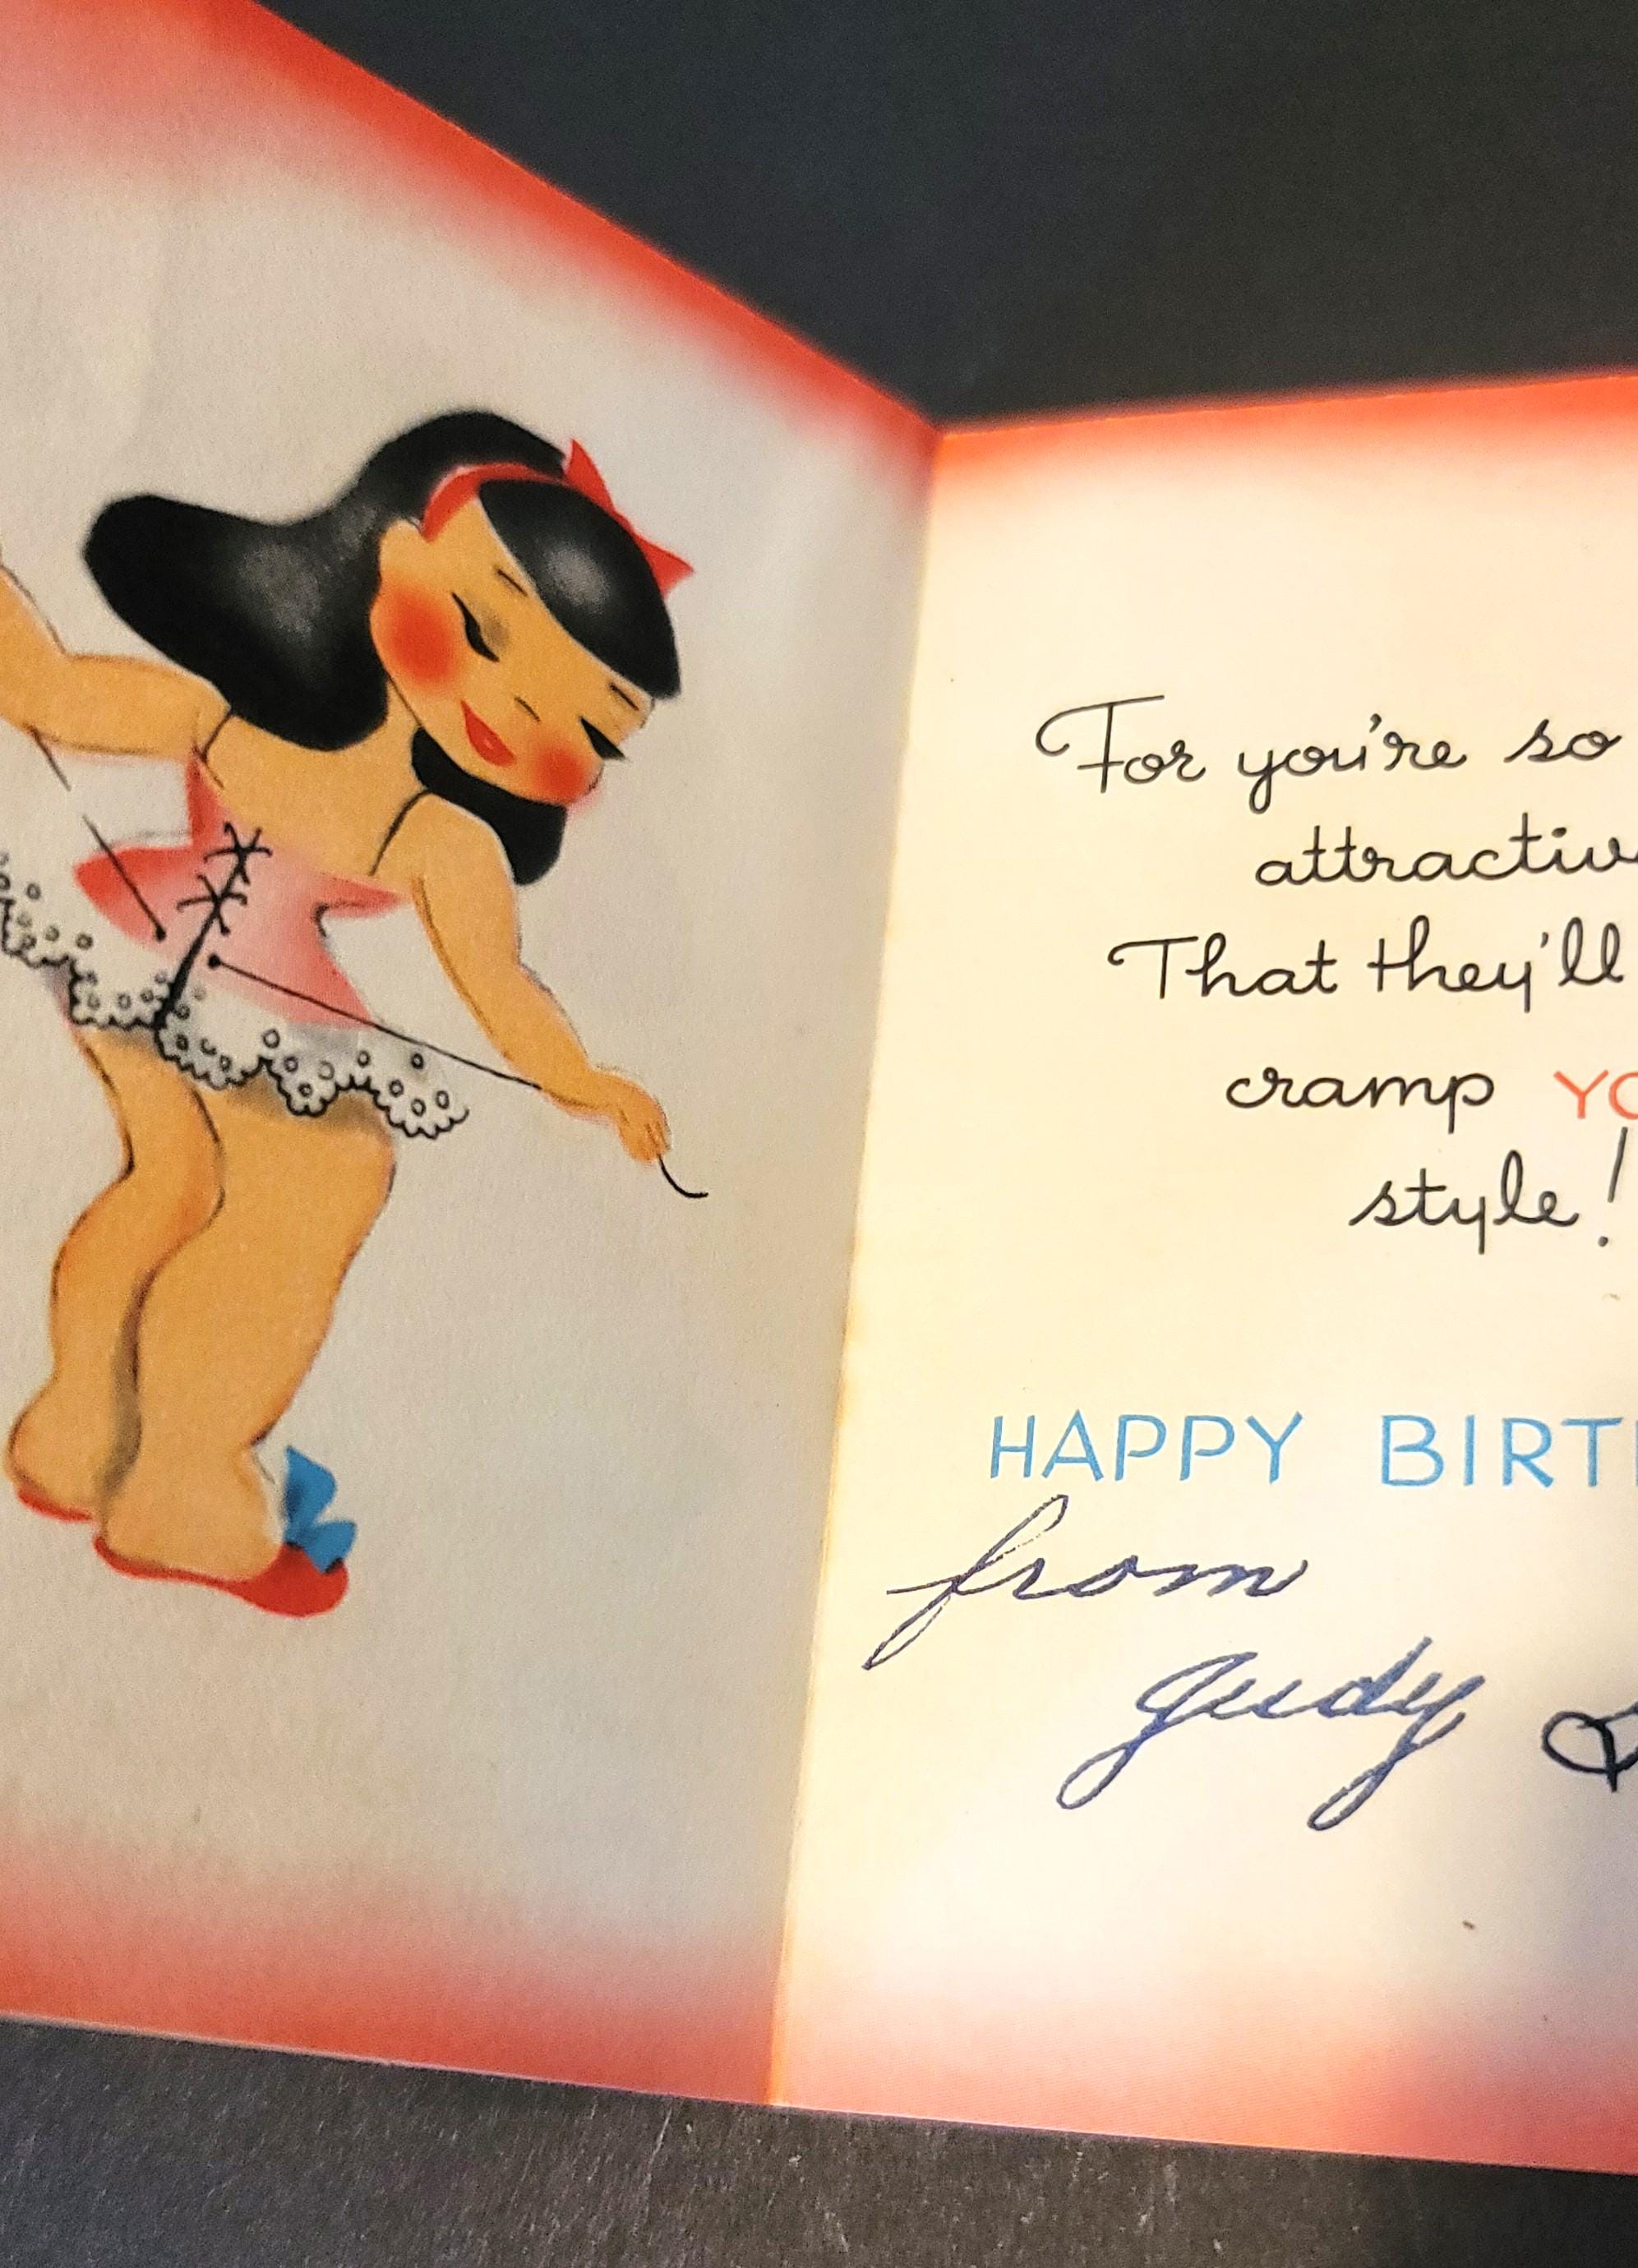 For you're so
attractiv
That they'll
cramp YO
style!
HAPPY BIRT
from
Judy